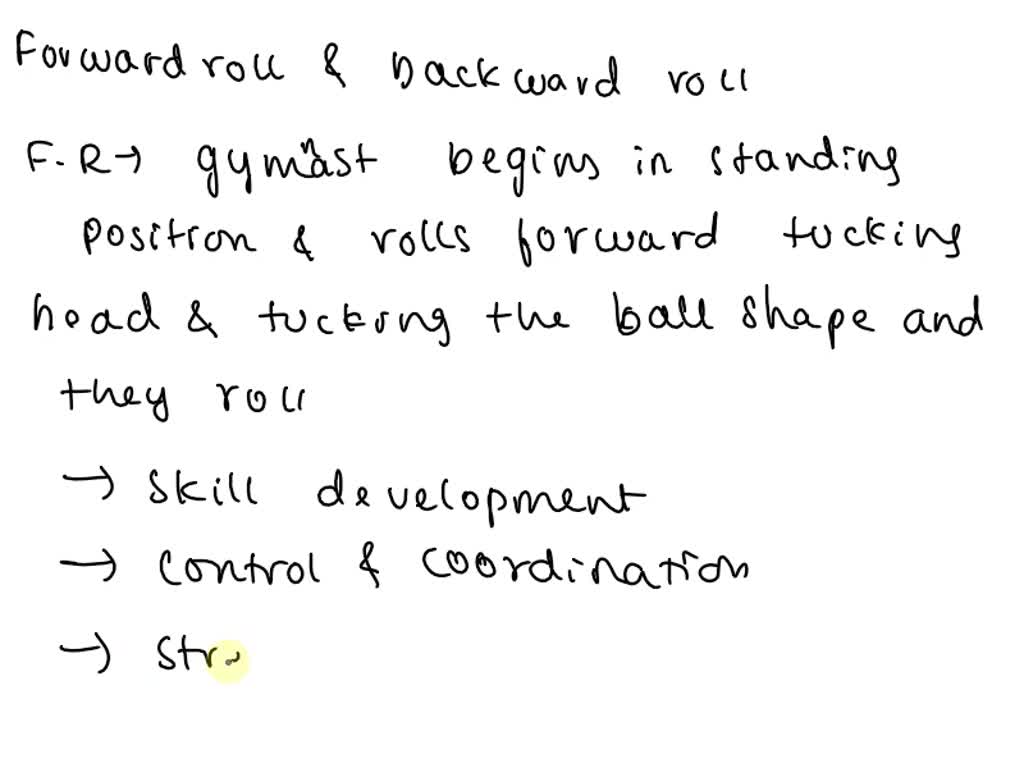 Forward roll & backward roll
F.R → gymnast begins in standing
position & rolls forward tucking
head & tucking the ball shape and
they roll
→ skill development
→ control & coordination
→ str